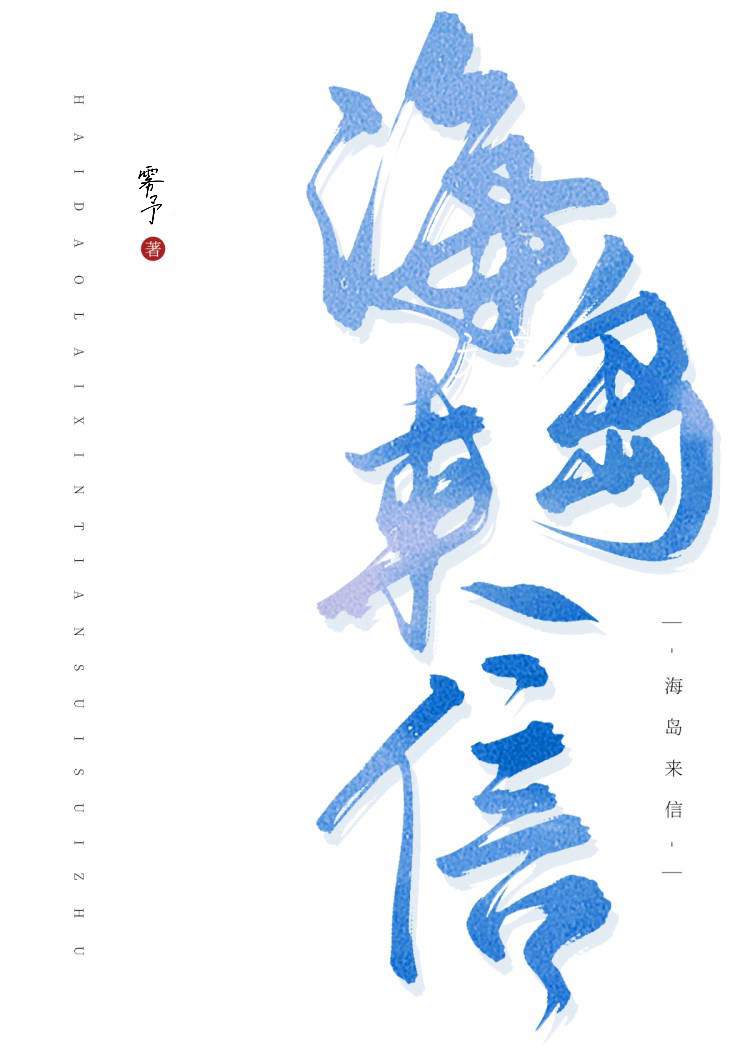 海岛来信
-海岛来信-
雾予
著
HAIDAOLAIXINTIANSUISUIZHU